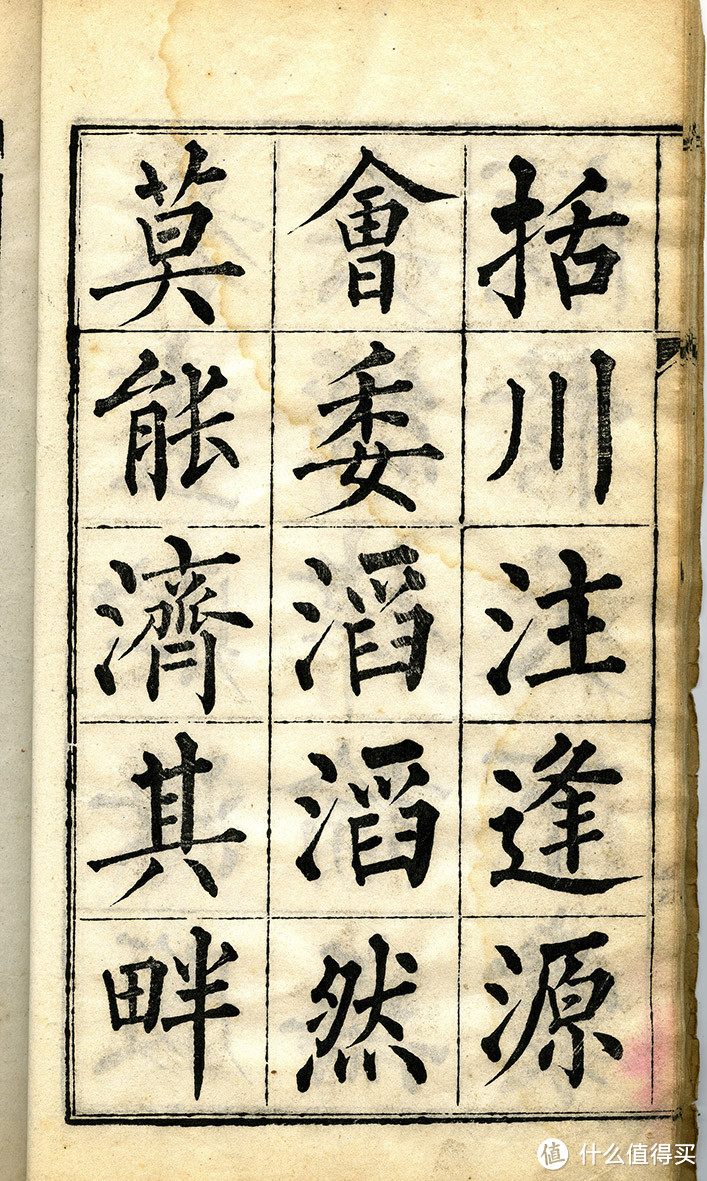 括川注逢源
會委滔滔然
莫能濟其畔
值 什么值得买